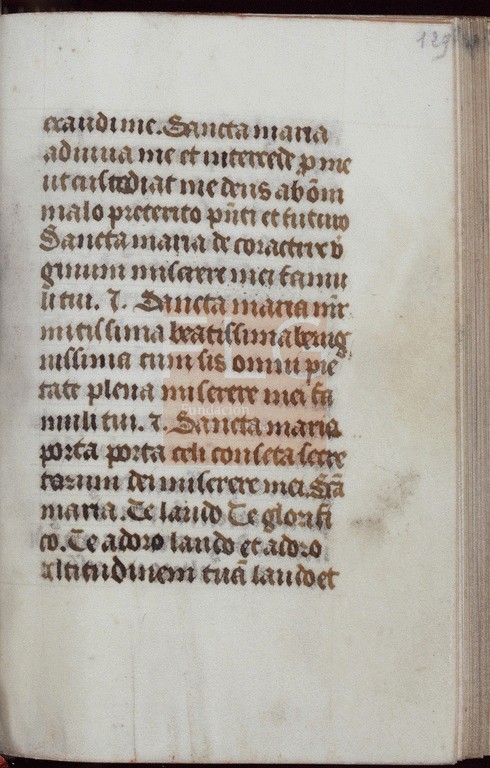 129
exaudi me. Sancta maria
adiuua me et intercede ꝓ me
ut custodiat me deus ab õni
malo preterito pñti et futuro
Sancta maria
ginum miserere mei famu
li tui. Sancta maria mr̃
mitissima beatissima benig
nissima cum sis omni pie
tate plena miserere mei fa
muli tui. Sancta maria
porta porta celi conseta secre
torum dei miserere mei. Sc̃a
maria. Te laudo Te glorifi
co. Te adoro laudo et adoro
altitudinem tuã laudo et
Fundación